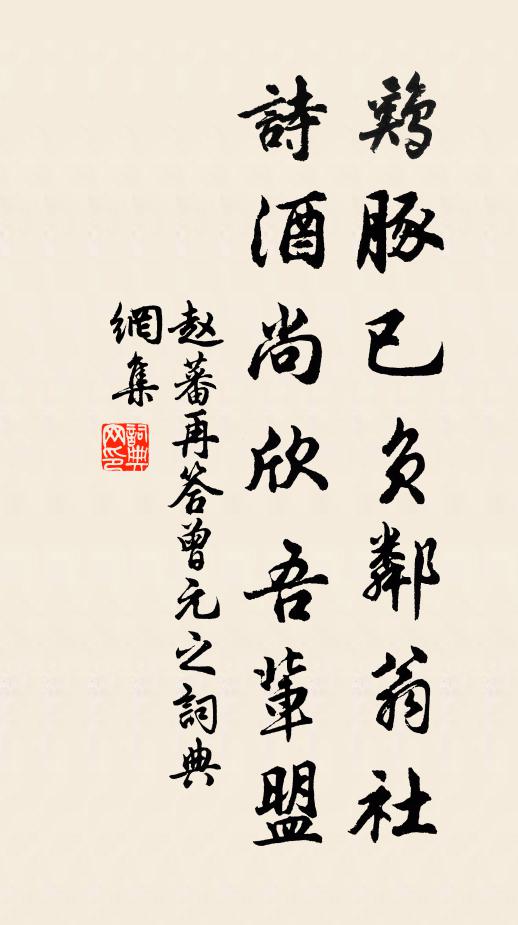 鷄豚已負鄰翁社
詩酒尚欣吾輩盟
赵蕃再答曾元之詞典
網集
詞典網印